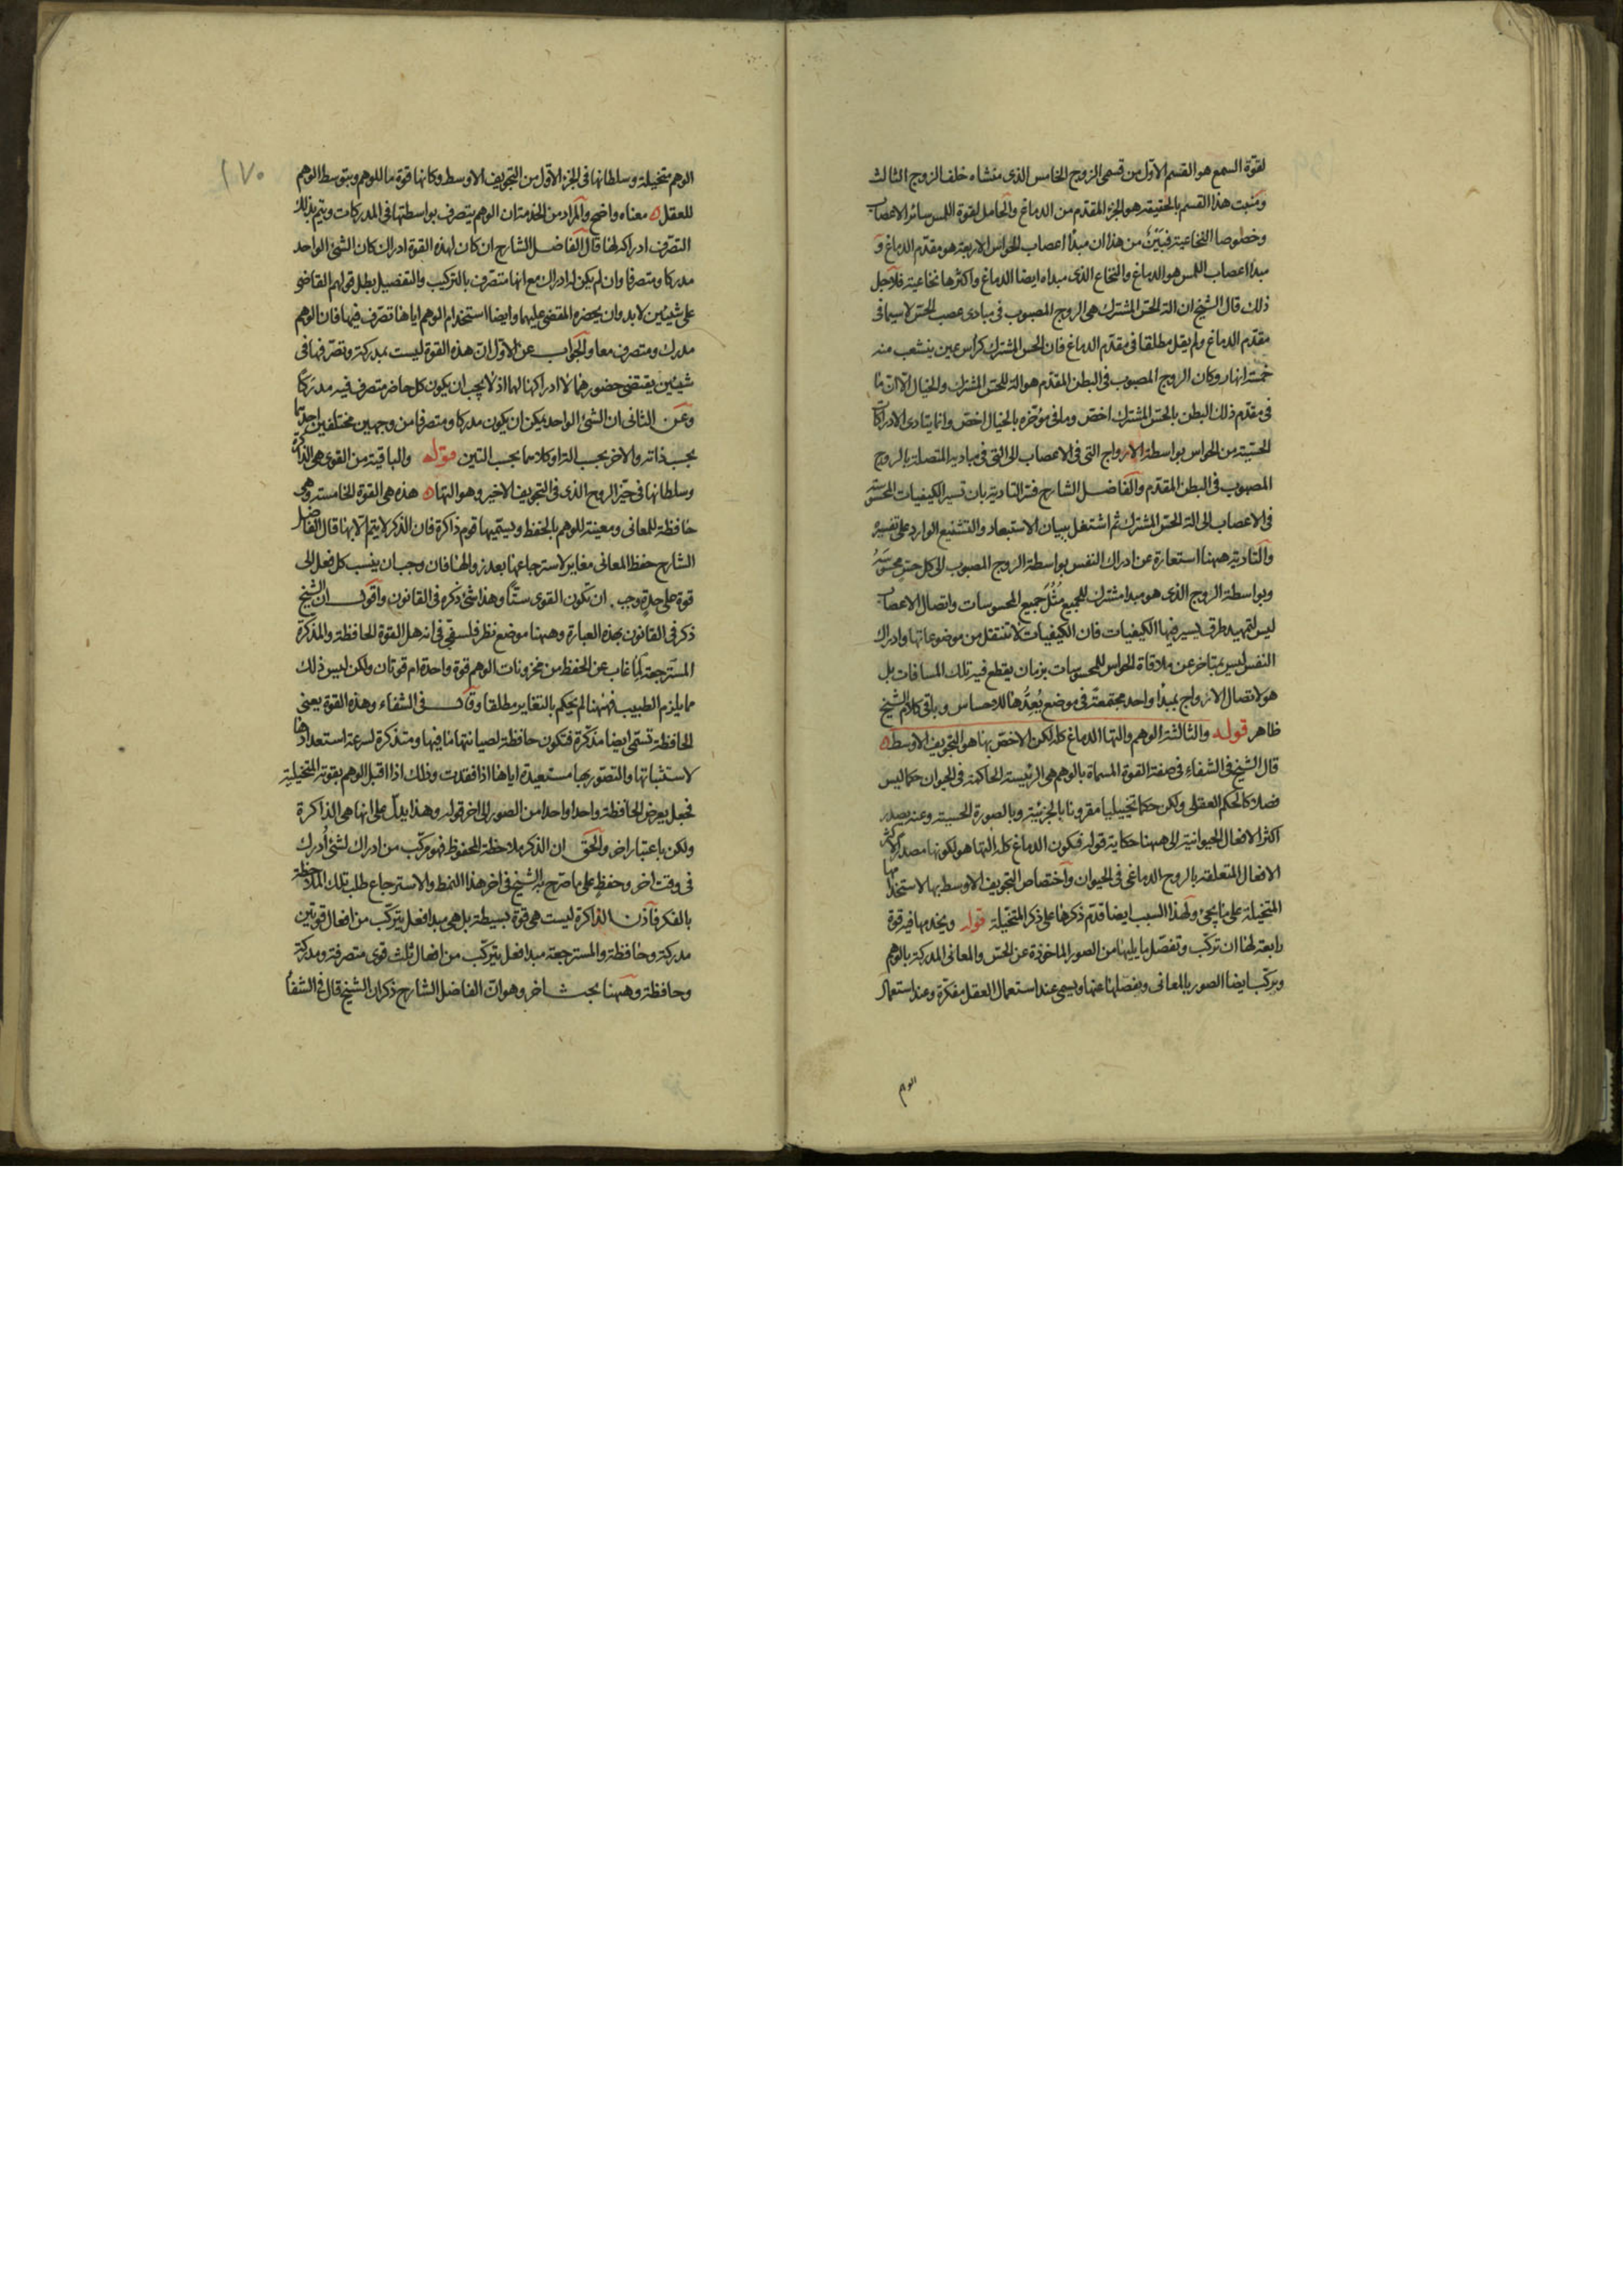 لقوة السمع هو القسم الاوّل من قسمى الزوج الخامس الذى منشاه خلف الزوج الثالث
ومنبت هذا القسم بالحقيقه هو الجزء المقدم من الدماغ والحامل لقوة اللمس سائر الاعصاب
وخصوصا النخاعية فتبيّن من هذا ان مبدأ اعصاب الحواس الاربعة هو مقدّم الدماغ و
مبدا اعصاب اللمس هو الدماغ والنخاع الذى مبداه ايضا الدماغ واكثرها نخاعية فلاجل
ذلك قال الشيخ ان الة الحسّ المشترك هى الروح المصبوب فى مبادى عصب الحسّ لا سيما فى
مقدّم الدماغ ولم يقل مطلقا فى مقدّم الدماغ فان الحس المشترك كراس عين ينشعب منه
خمسة انهار وكان الروح المصبوب فى البطن المقدّم هو الة للحسّ المشترك والخيال الّا ان ما
فى مقدّم ذلك البطن بالحسّ المشترك اخصّ وما فى مؤخره بالخيال اخصّ وانما يتادى الادراكات
الحسّية من الحواس بواسطة الارواح التى فى الاعصاب الى التى فى مباديها المتصلة بالروح
المصبوب فى البطن المقدّم والفاضل الشارح فسّر التادية بان تسير الكيفيات المحسوسة
فى الاعصاب الى الة الحسّ المشترك ثم اشتغل ببيان الاستبعاد والتشنيع الوارد على تفسيره
والتادية ههنا استعارة عن ادراك النفس بواسطة الروح المصبوب الى كل حسّ محسوسه
وبواسطة الروح الذى هو مبدا مشترك للجميع مُثُلَ جميع المحسوسات واتصال الاعصاب
ليس لتمهيد طرق يسير فيها الكيفيات فان الكيفيات لا تنتقل من موضوعاتها وادراك
النفس ليس بمتاخر عن ملاقاة الحواس للمحسوسات بزمان يقطع فيه تلك المسافات بل
هو لاتصال الارواح بمبدأ واحد مجتمعة فى موضع يُعِدُّها للاحساس وباقى كلام الشيخ
ظاهر قوله والثالثة الوهم والتها الدماغ كله لكن الاخصّ بها هو التجويف الاوسط
قال الشيخ فى الشفاء فى صفة القوة المسماة بالوهم هى الرئيسة الحاكمة فى الحيوان حكما ليس
فصلا كالحكم العقلى ولكن حكما تخييليا مقرونا بالجزئية وبالصورة الحسية وعنه يصدر
اكثر الافعال الحيوانية الى ههنا حكاية قوله فيكون الدماغ كله التها هو لكونها مصدر اكثر
الافعال المتعلقة بالروح الدماغى فى الحيوان واختصاص التجويف الاوسط بها لاستخدامها
المتخيلة على ما يجئ ولهذا السبب ايضا قدّم ذكرها على ذكر المتخيّلة قوله ويخدمها فيه قوة
رابعة لها ان تركّب وتفصّل ما يليها من الصور الماخوذة عن الحسّ والمعانى المدركة بالوهم
ويركّب ايضا الصور بالمعانى ويفصلها عنها ويسمى عند استعمال العقل مفكرة وعند استعمال
الوهم
١٧٠
الوهم متخيلة وسلطانها فى الجزء الاوّل من التجويف الاوسط وكانها قوة ما للوهم وبتوسط الوهم
للعقل معناه واضح والمراد من الخدمة ان الوهم يتصرف بواسطتها فى المدركات ويتم بذلك
التصّرف ادراكه لها قال الفاضل الشارح ان كان لهذه القوة ادراك كان الشئ الواحد
مدركا ومتصرفا وان لم يكن له ادراك مع انها متصرف بالتركيب والتفصيل بطل قولهم القاضى
على شيئين لا بد وان يحضره المقضى عليهما وايضا استخدام الوهم اياها تصرّف فيها فان الوهم
مدرك ومتصرف معا والجواب عن الاوّل ان هذه القوة ليست بمدركة وتصرّفها فى
شيئين يقتضى حضورهما لا ادراكها لهما اذ لا يجب ان يكون كل حاضر متصرف فيه مدركا
وعن الثانى ان الشئ الواحد يمكن ان يكون مدركا ومتصرفا من وجهين مختلفين احدهما
بحسب ذاته والاخر بحسب الة او كلاهما بحسب التين قوله والباقية من القوى هى الذاكرة
وسلطانها فى حيّز الروح الذى فى التجويف الاخير وهو التها هذه هى القوة الخامسة وهى
حافظة للمعانى ومعينة للوهم بالحفظ ويسميها قوم ذاكرة فان الذكر لا يتم الّا بها قال الفاضل
الشارح حفظ المعانى مغاير لاسترجاعها بعد زوالها فان وجب ان ينسب كل فعل الى
قوة على حدة وجب ان تكون القوى ستّا وهذا شئ ذكره فى القانون واقول ان الشيخ
ذكر فى القانون بهذه العبارة وههنا موضع نظر فلسفىّ فى انه هل القوة الحافظة والمذكّرة
المسترجعة لما غاب عن الحفظ من مخزونات الوهم قوة واحدة ام قوتان ولكن ليس ذلك
مما يلزم الطبيب فههنا لم يحكم بالتغاير مطلقا وقال فى الشفاء وهذه القوة يعنى
الحافظة تسمّى ايضا متذكّرة فتكون حافظة لصيانتها ما فيها ومتذكرة لسرعة استعدادها
لاستثباتها والتصّور بها مستعيدة اياها اذا فقدت وذلك اذا اقبل الوهم بقوته المتخيلة
فجعل يعرض الحافظة واحدا واحدا من الصور الى اخر قوله وهذا يدلّ على انها هى الذاكرة
ولكن باعتبار اخر والحق ان الذكر ملاحظة المحفوظ فهو مركّب من ادراك لشئ أُدرك
فى وقت اخر وحفظٍ على ما صرّح به الشيخ فى اخر هذا النمط والاسترجاع طلب تلك الملاحظة
بالفكر فاذن الذاكرة ليست هى قوة بسيطة بل هى مبدا فعل يتركّب من افعال قوتين
مدركة وحافظة والمسترجعة مبدا فعل يتركّب من افعال ثلث قوى متصرفة ومدركة
وحافظة وههنا بحث اخر وهو ان الفاضل الشارح ذكر ان الشيخ قال فى الشفا